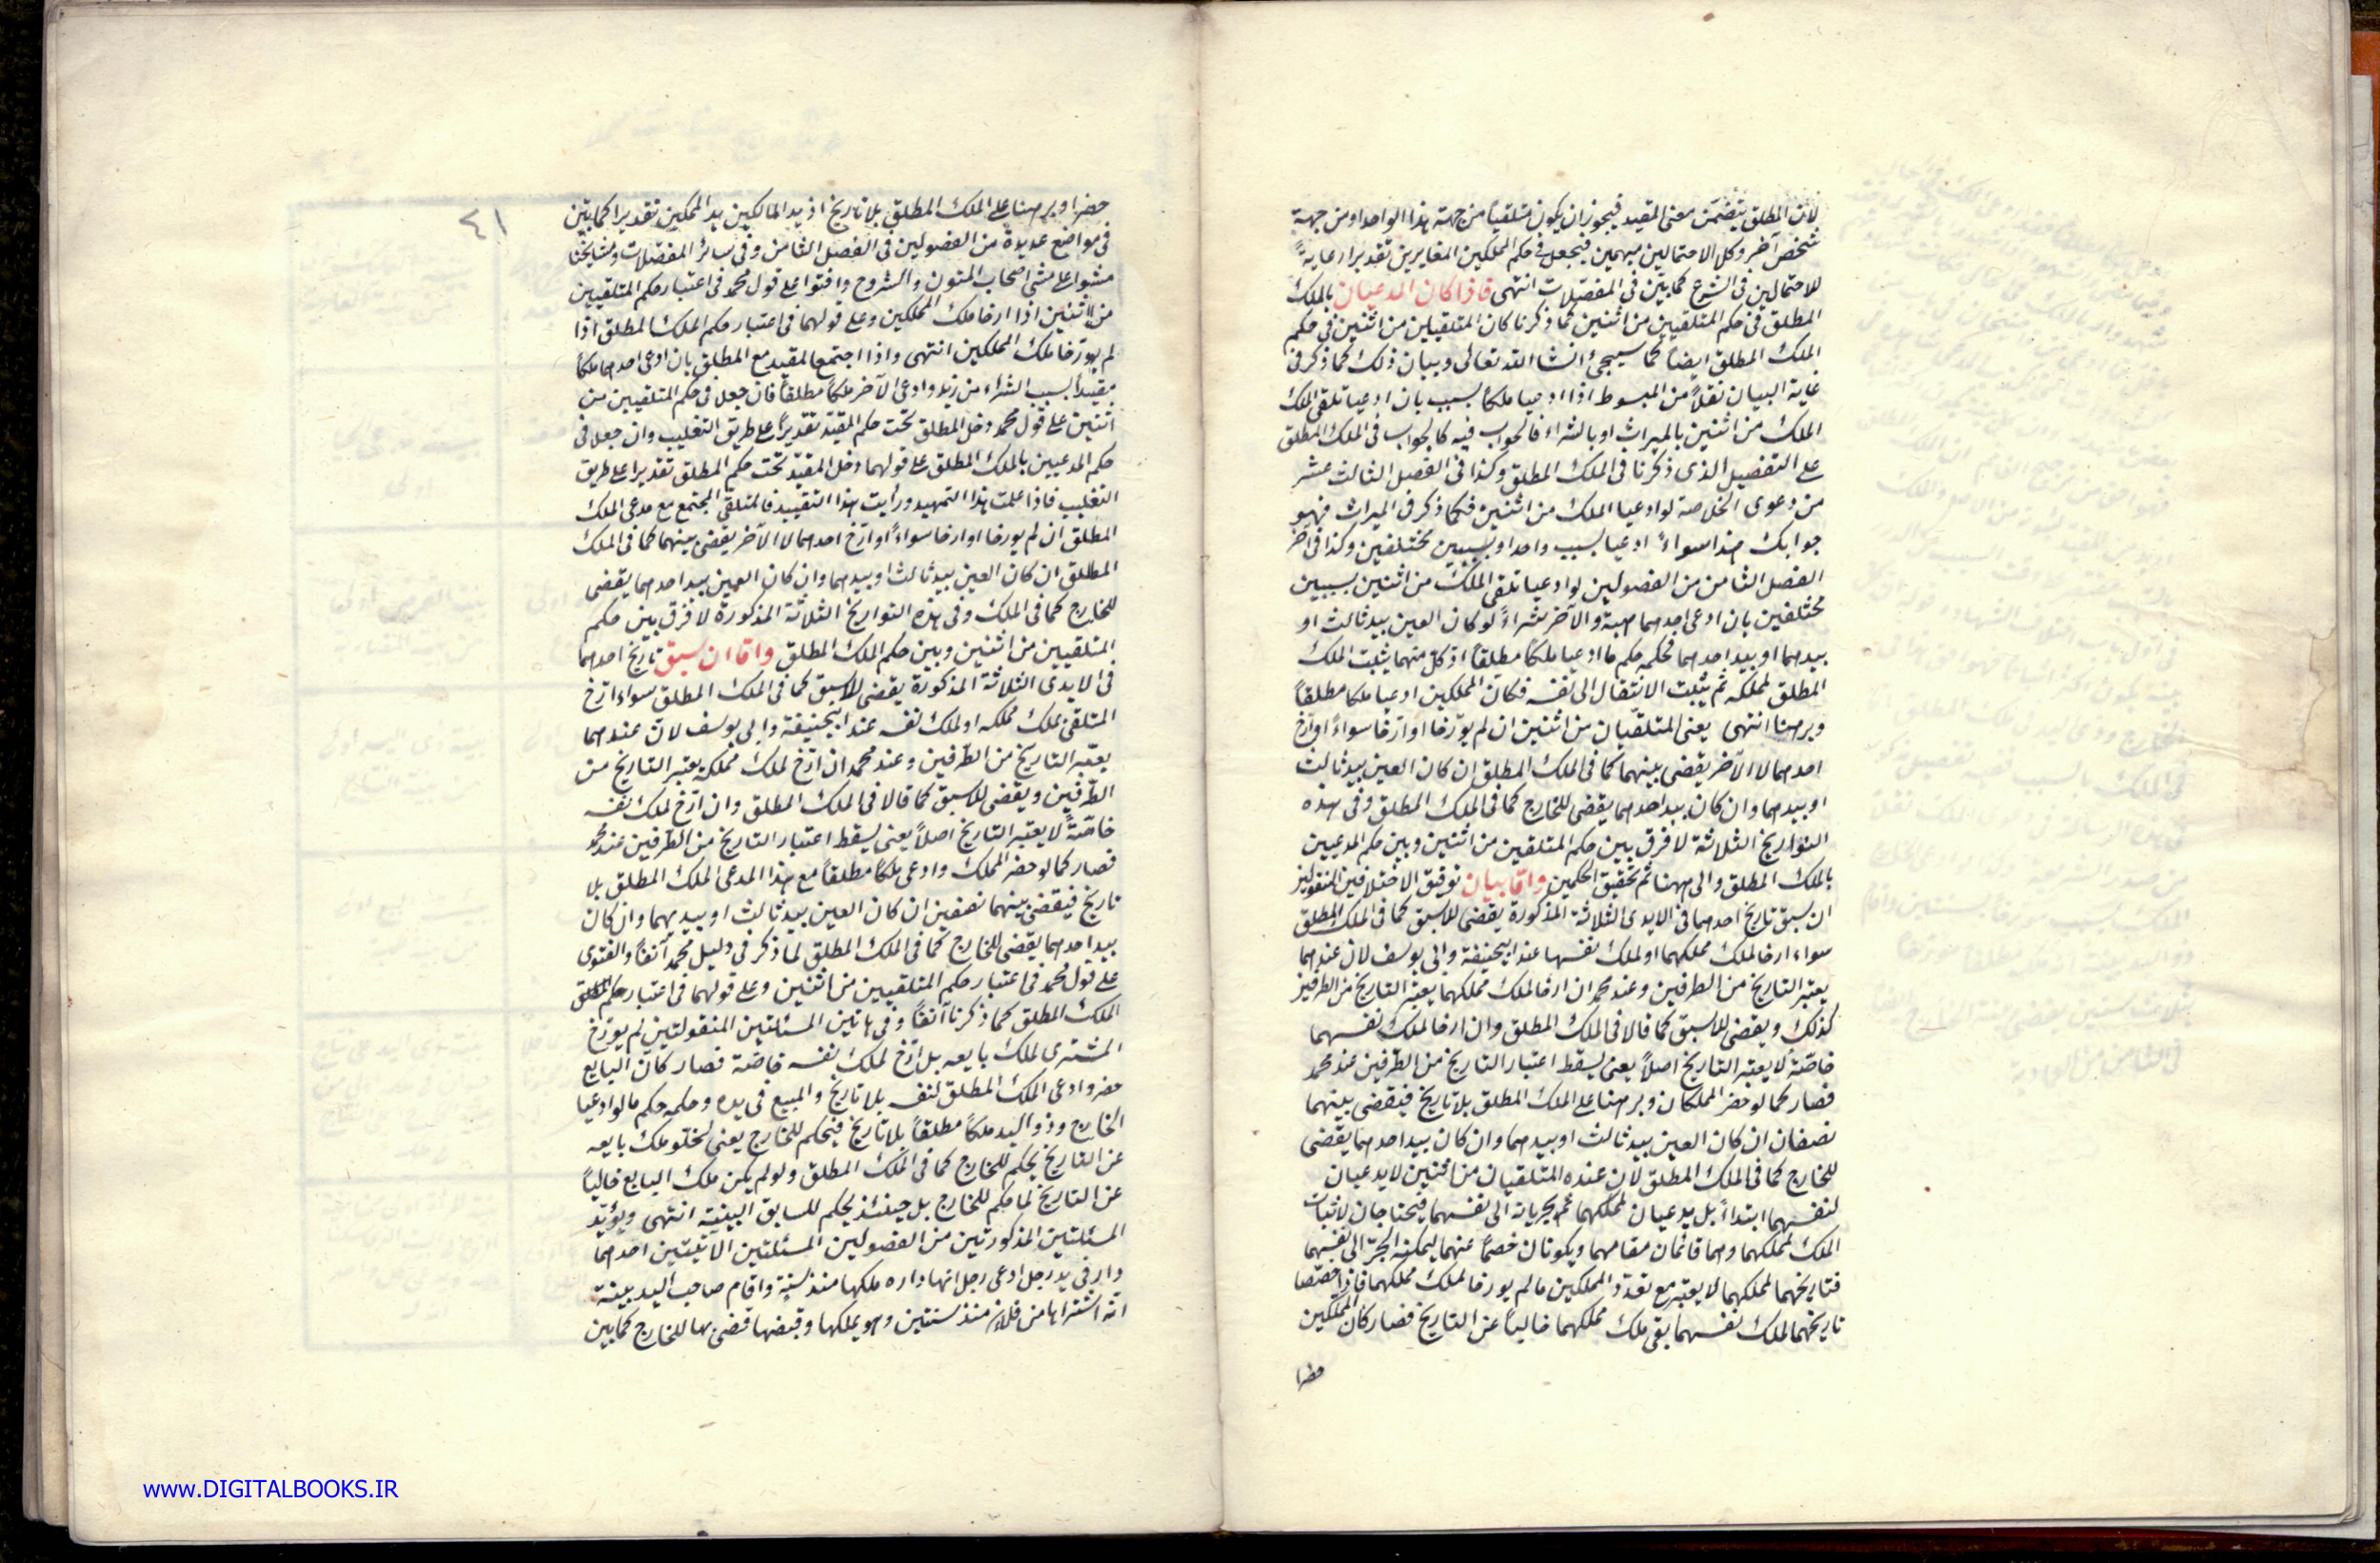 لان المطلق يتضمن معنى المقيد فيجوز ان يكون متلقيا من جهة هذا الواحد او من جهة
شخص آخر وكل الاحتمالين مبهمين فيجعل فى حكم المملكين المغايرين تقديرا رعاية
للاحتمالين فى الشرع كما بين فى المفصلات انتهى فاذا كان المدعيان بالملك
المطلق فى حكم المتلقيين من اثنين كما ذكرنا كان المتلقيان من اثنين فى حكم
الملك المطلق ايضا كما سيجئ انشا الله تعالى وبيان ذلك كما ذكر فى
غاية البيان نقلا من المبسوط اذا ادعيا ملكا بسبب بان ادعيا تلقى الملك
الملك من اثنين بالميراث او بالشراء فالجواب فيه كالجواب فى الملك المطلق
على التفصيل الذى ذكرنا فى الملك المطلق وكذا فى الفصل الثالث عشر
من دعوى الخلاصة لو ادعيا الملك من اثنين فكما ذكر فى الميراث فهو
جوابك هنا سواء ادعيا بسبب واحد او بسببين مختلفين وكذا فى آخر
الفصل الثامن من الفصولين لو ادعيا تلقى الملك من اثنين بسببين
مختلفين بان ادعى احدهما هبة والآخر شراء لو كان العين بيد ثالث او
بيدهما او بيد احدهما فحكمه حكم ما ادعيا ملكا مطلقا اذ كل منهما يثبت الملك
المطلق لمملكه ثم يثبت الانتقال الى نفسه فكان المملكين ادعيا ملكا مطلقا
وبرهنا انتهى يعنى المتلقيان من اثنين ان لم يورخا او ارخا سواء او ارخ
احدهما لا الآخر يقضى بينهما كما فى الملك المطلق ان كان العين بيد ثالث
او بيدهما وان كان بيد احدهما يقضى للخارج كما فى الملك المطلق وفى هذه
التواريخ الثلاثة لا فرق بين حكم المتلقين من اثنين وبين حكم المدعيين
بالملك المطلق والى ههنا تم تحقيق الحكمين واما بيان توفيق الاختلافين المنقولين
ان سبق تاريخ احدهما فى الايدى الثلاثة المذكورة يقضى للاسبق كما فى الملك المطلق
سواء ارخا لملك مملكهما او لملك نفسهما عند ابيحنيفة وابى يوسف لان عندهما
يعتبر التاريخ من الطرفين وعند محمد ان ارخا لملك مملكهما يعتبر التاريخ من الطرفين
كذلك ويقضى للاسبق كما قالا فى الملك المطلق وان ارخا لملك نفسهما
خاصة لا يعتبر التاريخ اصلا يعنى يسقط اعتبار التاريخ من الطرفين عند محمد
فصار كما لو حضر المملكان وبرهنا على الملك المطلق بلا تاريخ فيقضى بينهما
نصفان ان كان العين بيد ثالث او بيدهما وان كان بيد احدهما يقضى
للخارج كما فى الملك المطلق لان عنده المتلقيان من اثنين لا يدعيان
لنفسهما ابتداء بل يدعيان لمملكهما ثم يجريانه الى نفسهما فيحتاجان لاثبات
الملك لمملكهما وهما قائمان مقامهما ويكونان خصما عنهما ليمكنه الجر الى نفسهما
فتاريخهما لمملكهما لا يعتبر مع تعدد المملكين ما لم يورخا لملك مملكهما فاذا خصصا
تاريخهما لملك نفسهما بقى ملك مملكهما خاليا عن التاريخ فصار كان المملكين
حضرا
٤١
حضرا وبرهنا على الملك المطلق بلا تاريخ اذ يد المالكين يد المملكين تقديرا كما بين
فى مواضع عديدة من الفصولين فى الفصل الثامن وفى سائر المفصلات ومشايخنا
مشوا على مشى اصحاب المتون والشروح وافتوا على قول محمد فى اعتبار حكم المتلقيين
من اثنين اذا ارخا ملك المملكين وعلى قولهما فى اعتبار حكم الملك المطلق اذا
لم يورخا ملك المملكين انتهى واذا اجتمع المقيد مع المطلق بان ادعى احدهما ملكا
مقيدا بسبب الشراء من زيد وادعى الآخر ملكا مطلقا فان جعل فى حكم المتلقيين من
اثنين على قول محمد دخل المطلق تحت حكم المقيد تقديرا على طريق التغليب وان جعل فى
حكم المدعيين بالملك المطلق على قولهما دخل المقيد تحت حكم المطلق تقديرا على طريق
التغليب فاذا علمت هذا التمهيد ورأيت هذا التقييد فالمتلقى المجتمع مع مدعى الملك
المطلق ان لم يورخا او ارخا سواء او ارخ احدهما لا الآخر يقضى بينهما كما فى الملك
المطلق ان كان العين بيد ثالث او بيدهما وان كان العين بيد احدهما يقضى
للخارج كما فى الملك وفى هذه التواريخ الثلاثة المذكورة لا فرق بين حكم
المتلقيين من اثنين وبين حكم الملك المطلق واما ان سبق تاريخ احدهما
فى الايدى الثلاثة المذكورة يقضى للاسبق كما فى الملك المطلق سواء ارخ
المتلقى لملك مملكه او لملك نفسه عند ابيحنيفة وابى يوسف لان عندهما
يعتبر التاريخ من الطرفين وعند محمد ان ارخ لملك مملكه يعتبر التاريخ من
الطرفين ويقضى للاسبق كما قالا فى الملك المطلق وان ارخ لملك نفسه
خاصة لا يعتبر التاريخ اصلا يعنى يسقط اعتبار التاريخ من الطرفين عند محمد
فصار كما لو حضر المملك وادعى ملكا مطلقا مع هذا المدعى الملك المطلق بلا
تاريخ فيقضى بينهما نصفين ان كان العين بيد ثالث او بيديهما وان كان
بيد احدهما يقضى للخارج كما فى الملك المطلق لما ذكر فى دليل محمد آنفا والفتوى
على قول محمد فى اعتبار حكم المتلقيين من اثنين وعلى قولهما فى اعتبار حكم
الملك المطلق كما ذكرنا آنفا وفى هاتين المسئلتين المنقولتين لم يورخ
المشترى لملك بايعه بل ارخ لملك نفسه خاصة فصار كان البايع
حضر وادعى الملك المطلق لنفسه بلا تاريخ والمبيع فى يده وحكمه حكم ما لو ادعيا
الخارج وذو اليد ملكا مطلقا بلا تاريخ فيحكم للخارج يعنى لخلو ملك بايعه
عن التاريخ يحكم للخارج كما فى الملك المطلق ولو لم يكن ملك البايع خاليا
عن التاريخ لما حكم للخارج بل حينئذ يحكم للسابق البينة انتهى ويؤيد
المسئلتين المذكورتين من الفصولين المسئلتين الآتيتين احدهما
دار فى يد رجل ادعى رجل انها داره ملكها منذ سنة واقام صاحب اليد بينة
انه اشتراها من فلان منذ سنتين وهو يملكها وقبضها قضى بها للخارج كما بين
www.DIGITALBOOKS.IR